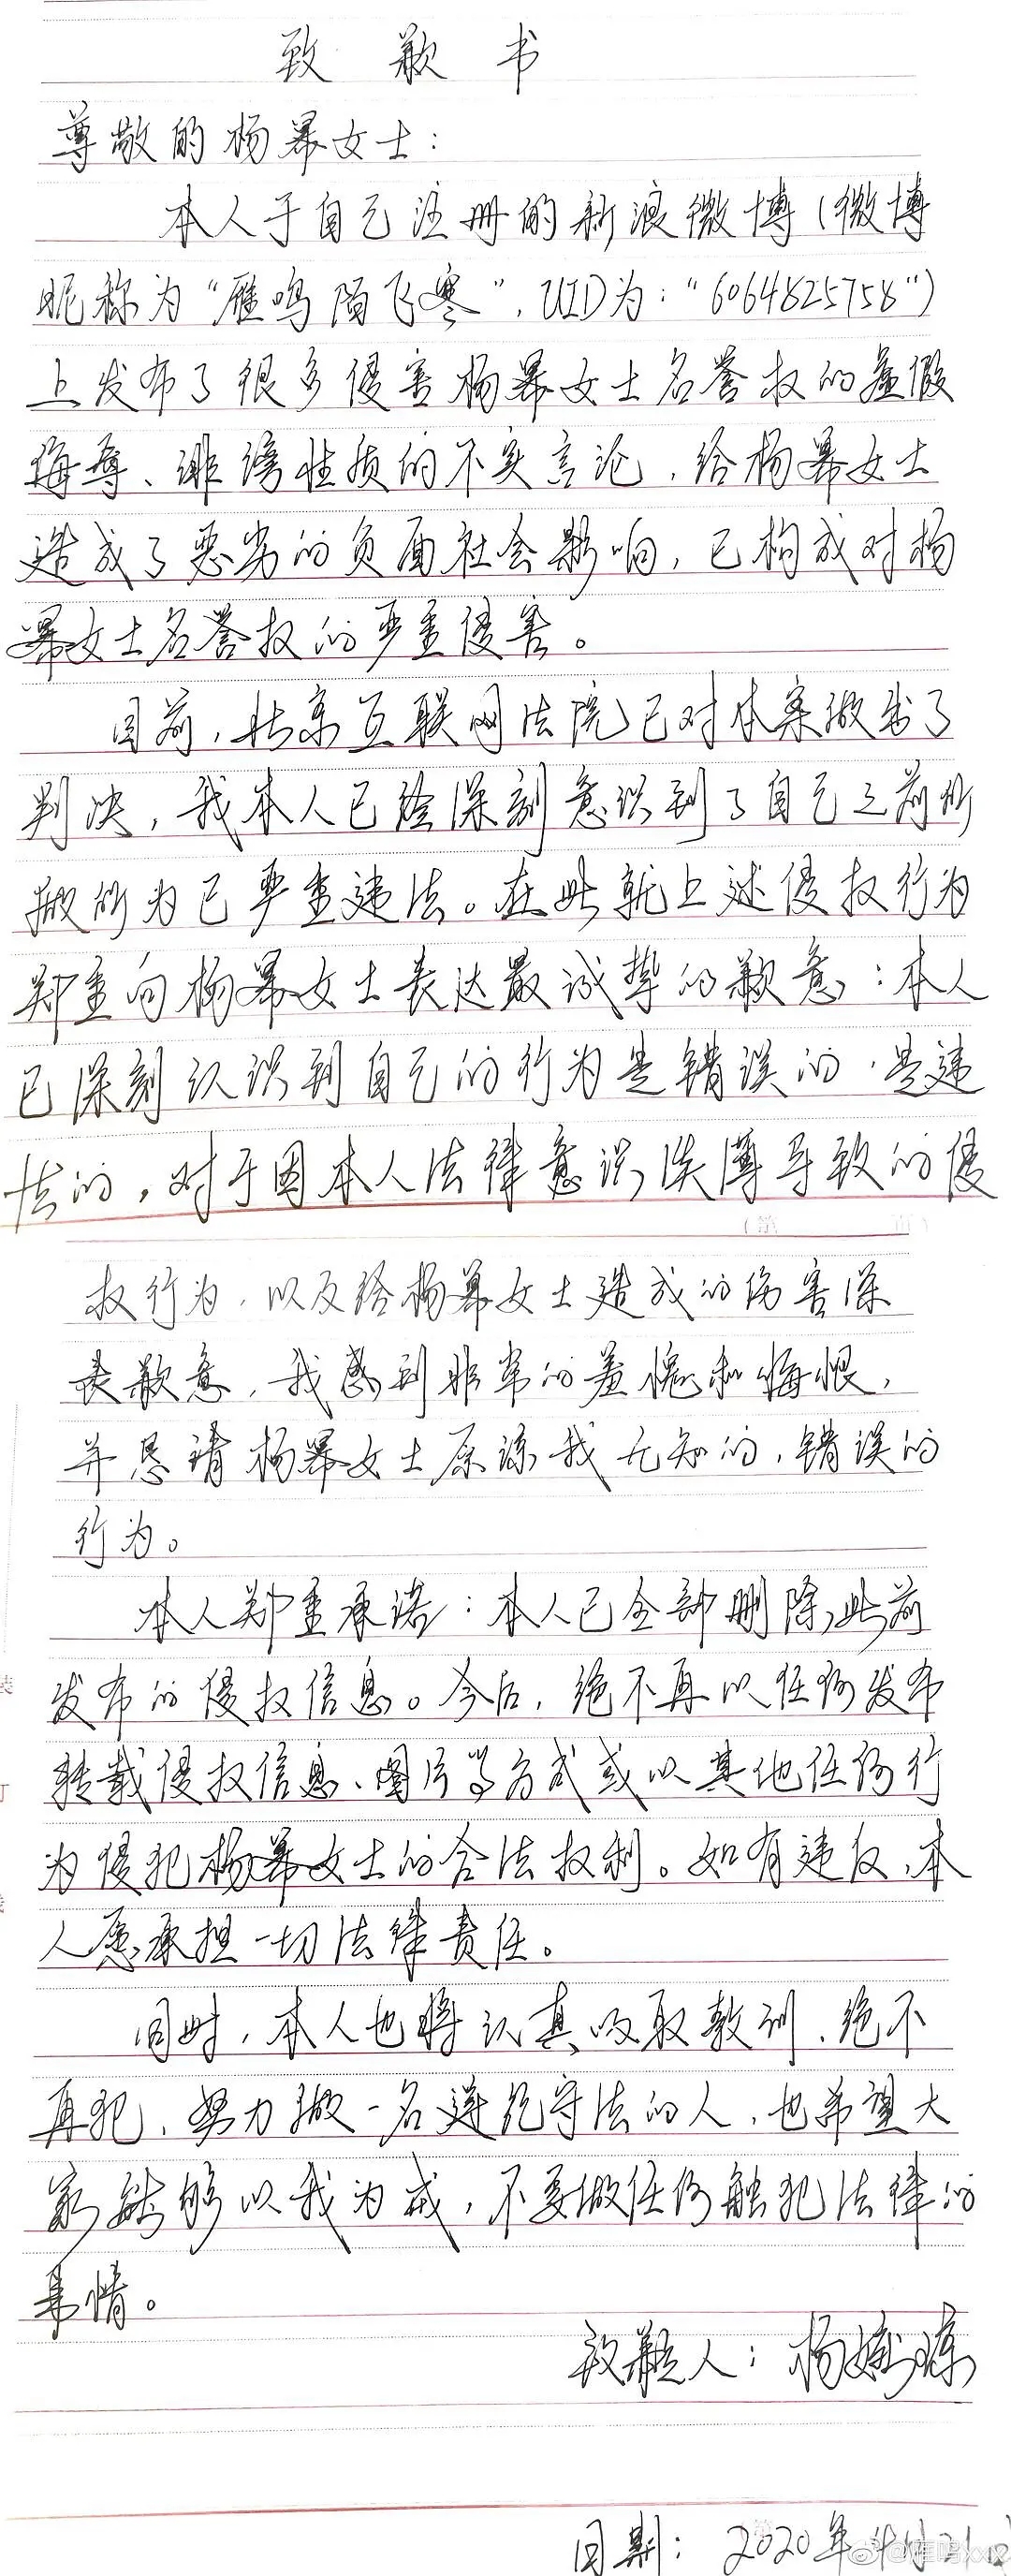 致歉书
尊敬的杨幂女士：
本人于自己注册的新浪微博（微博
昵称为“雁鸣陌飞寒”，UID为：“6064825758”）
上发布了很多侵害杨幂女士名誉权的虚假
侮辱、诽谤性质的不实言论，给杨幂女士
造成了恶劣的负面社会影响，已构成对杨
幂女士名誉权的严重侵害。
目前，北京互联网法院已对本案做出了
判决，我本人已经深刻意识到了自己之前所
做所为已严重违法。在此就上述侵权行为
郑重向杨幂女士表达最诚挚的歉意：本人
已深刻认识到自己的行为是错误的，是违
法的，对于因本人法律意识淡薄导致的侵
权行为，以及给杨幂女士造成的伤害深
表歉意，我感到非常的羞愧和悔恨，
并恳请杨幂女士原谅我无知的，错误的
行为。
本人郑重承诺：本人已全部删除此前
发布的侵权信息。今后，绝不再以任何发布
转载侵权信息、图片等方式或以其他任何行
为侵犯杨幂女士的合法权利。如有违反，本
人愿承担一切法律责任。
同时，本人也将认真吸取教训，绝不
再犯，努力做一名遵纪守法的人，也希望大
家能够以我为戒，不要做任何触犯法律的
事情。
致歉人：杨
日期：2020年4月21日
@雁鸣xxx